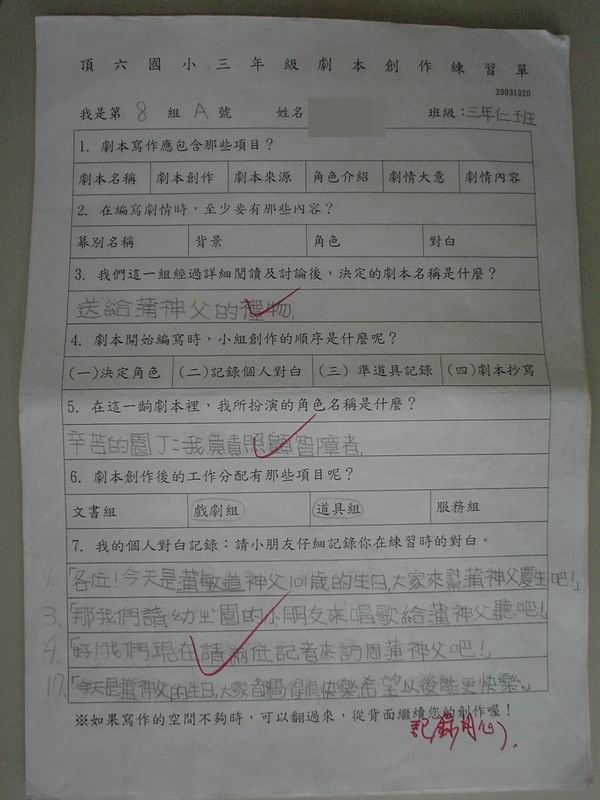 頂六國小三年級劇本創作練習單
20031020
我是第 8 組 A 號 姓名 班級：三年仁班
1. 劇本寫作應包含那些項目？
劇本名稱 劇本創作 劇本來源 角色介紹 劇情大意 劇情內容
2. 在編寫劇情時，至少要有那些內容？
幕別名稱 背景 角色 對白
3. 我們這一組經過詳細閱讀及討論後，決定的劇本名稱是什麼？
送給蒲神父的禮物.
4. 劇本開始編寫時，小組創作的順序是什麼呢？
(一)決定角色 (二)記錄個人對白 (三) 準道具記錄 (四)劇本抄寫
5. 在這一齣劇本裡，我所扮演的角色名稱是什麼？
辛苦的園丁二：我負責照顧智障者.
6. 劇本創作後的工作分配有那些項目呢？
文書組 戲劇組 道具組 服務組
7. 我的個人對白記錄：請小朋友仔細記錄你在練習時的對白。
1.「各位！今天是蒲敏道神父101歲的生日,大家來幫蒲神父慶生吧！」
3.「那我們請幼ㄓ園的小朋友來唱歌給蒲神父聽吧！」
4.「好！我們現在請兩位記者來訪問蒲神父吧！」
17.「今天是蒲神父的生日,大家都過得很快樂希望以後能更快樂。」
※如果寫作的空間不夠時，可以翻過來，從背面繼續您的創作喔！
記錄用心